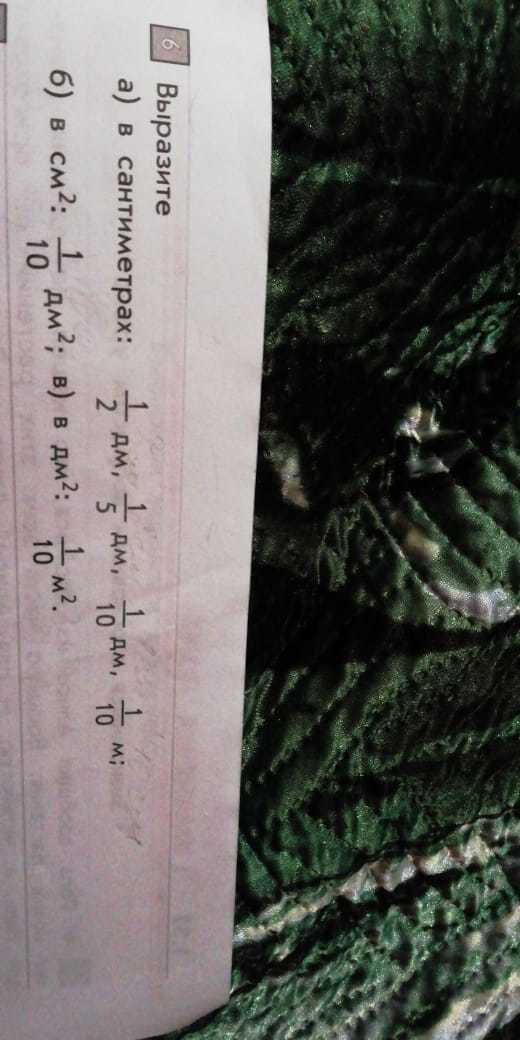 6 Выразите
а) в сантиметрах: 1/2 дм, 1/5 дм, 1/10 дм, 1/10 м;
б) в см²: 1/10 дм²; в) в дм²: 1/10 м².